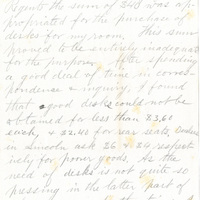 Regents the sum of $240 was ap-
propriated for the purchase of
desks for my room. This sum
proved to be entirely inadequate
for the purpose. After spending
a good deal of time in corres-
pondence & inquiry, I found
that good desks could not be
obtained for less than $3.60
each, & $2.45 for rear seats,
in Lincoln ask &
ively for poorer goods. As the
need of desks is not quite so
pressing in the latter part of